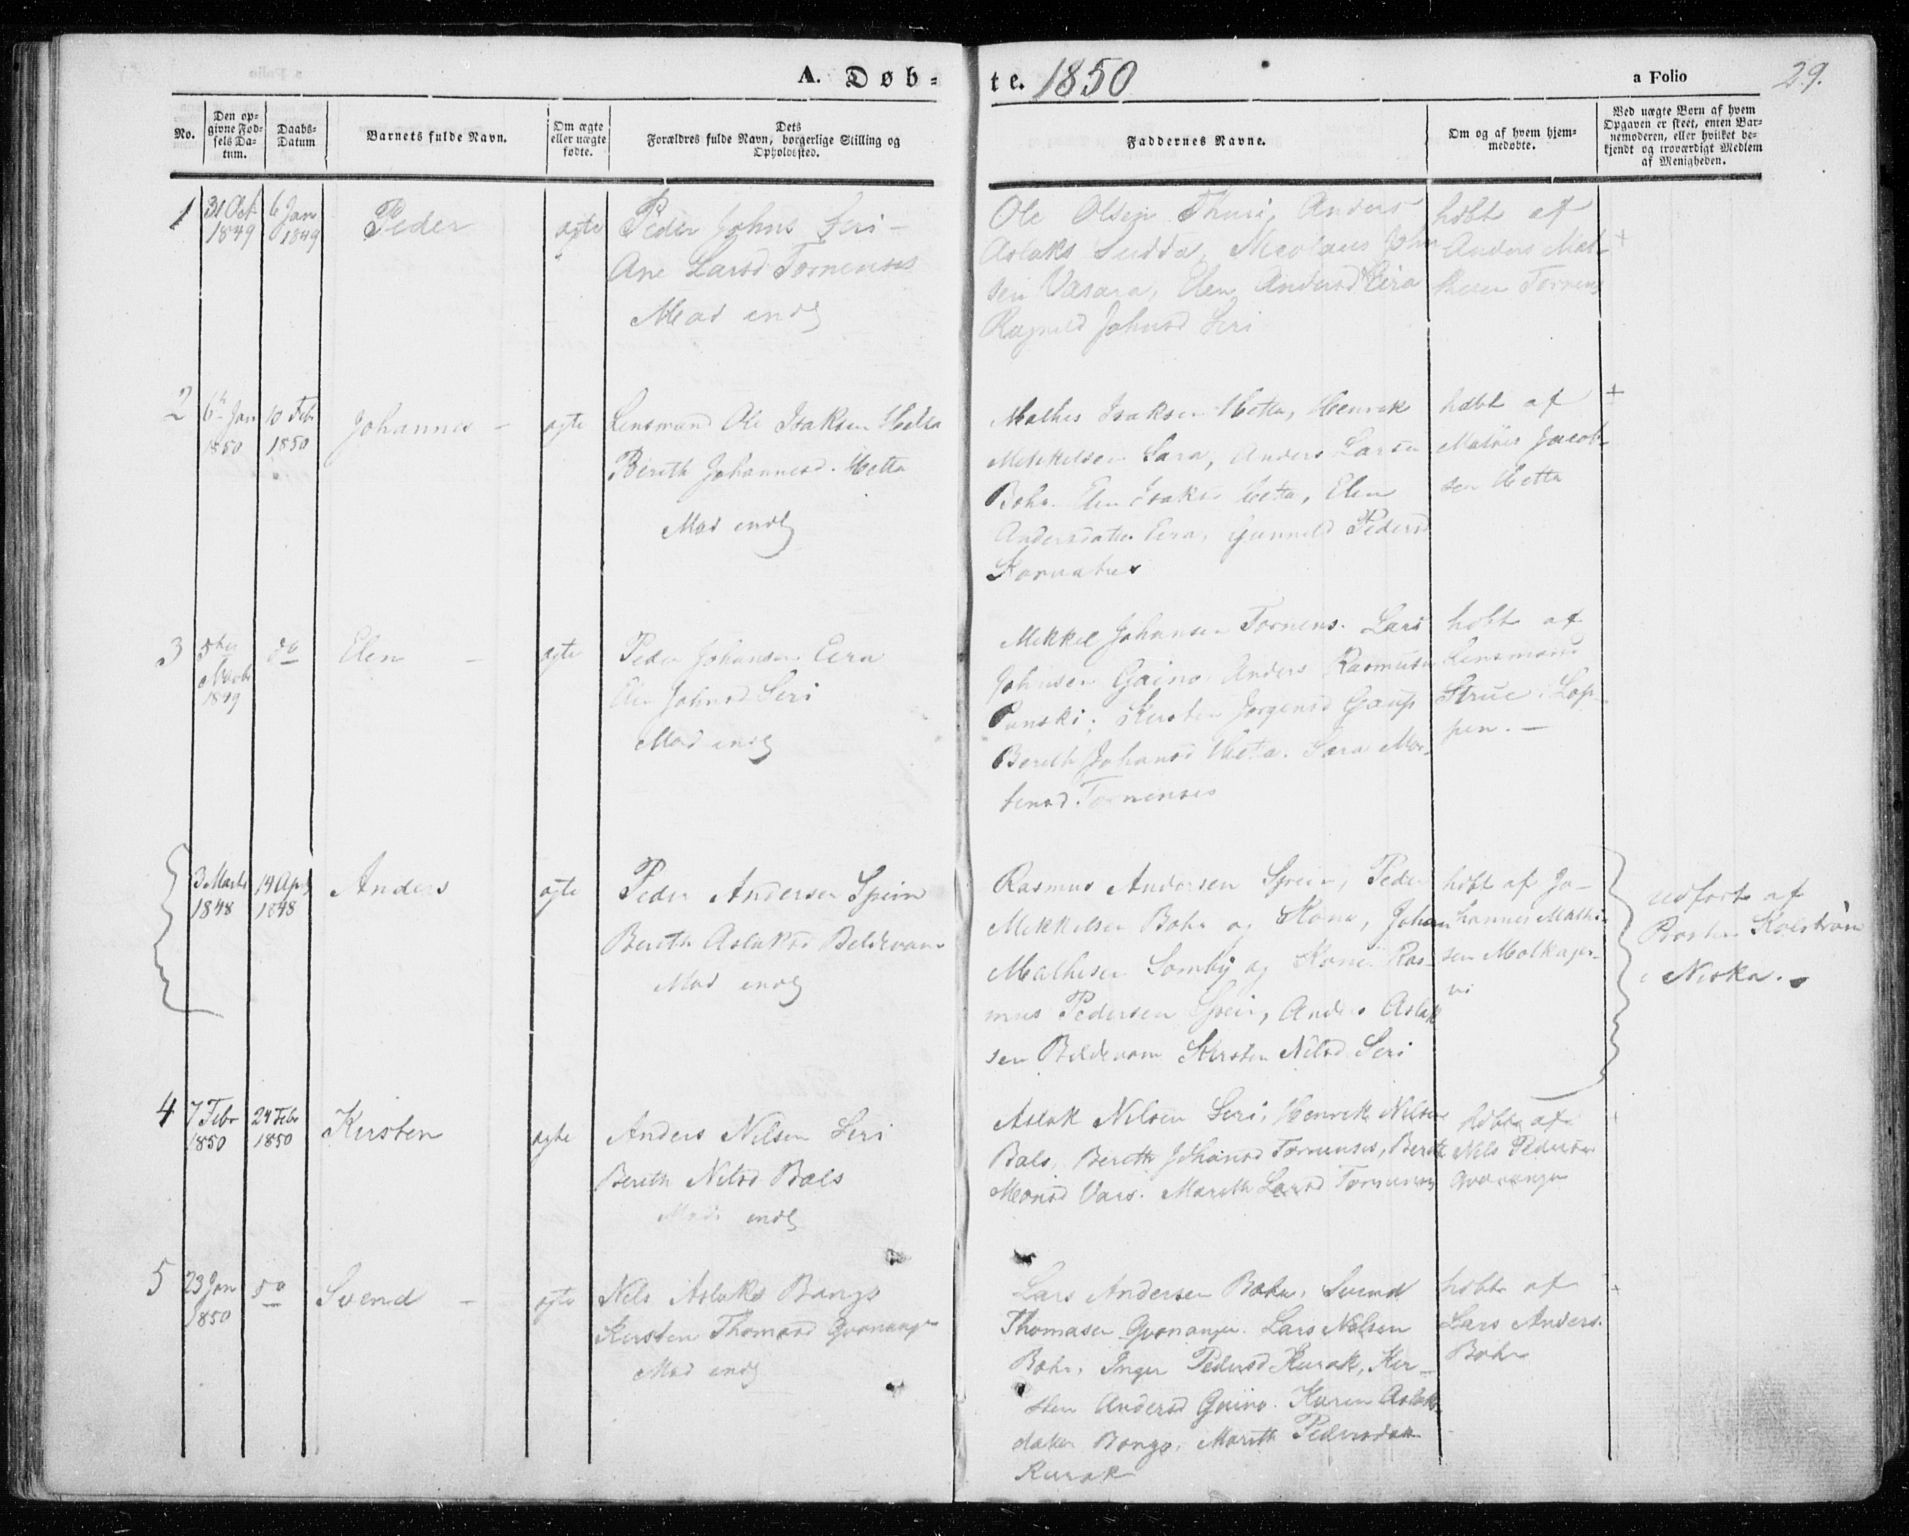 A. Døb-
te. 1850
a Folio 29.
No.
Den op-
givne Fød-
sels Da-
tum.
Daabs-
Datum
Barnets fulde Navn.
Om ægte
eller uægte
fødte.
Dets
Forældres fulde Navn, borgerlige Stilling og
Opholdssted.
Faddernes Navne.
Om og af hvem hjem-
medøbte.
Ved uægte Børn af hvem
Opgaven er skeet, enten Bar-
nemoderen, eller hvilket be-
kjendt og troværdigt Medlem
af Menigheden.
1
31 Oct
1849
6 Jan
1849
Peder
ægte
Peder Johns Seri -
Ane Larsd Tornenses
Mad endl
Ole Olsen Thuri, Anders
Aslaks Sudda, Nicolaus John
sen Vasara, Elen Andersd Eira
Ragnild Johnsd Seri
hdbt af
Anders Mat-
thesen Tornens
+
2
6te Jan
1850
10 Febr
1850
Johannes -
ægte
Lensmand Ole Isaksen Hætta
Berith Johannesd. Hetta
Mad endl
Mathes Isaksen Hetta, Henrik
Mikkelsen Sara, Anders Larsen
Bohr. Elen Isaks Hetta, Elen
Andersdatter Eira, Gunnild Pedersd
hdbt af
Mathis Jacob-
sen Hetta
+
3
5te
Novbr
1849
do
Elen -
ægte
Peder Johansen Eira
Elen Johnsd Seri
Mad endl
Mikkel Johansen Tornens. Lars
Johnsen Gaino. Anders Rasmusen
Kirsten Jørgensd Gaup
Berith Johansd Hetta. Sara Mor-
tensd Tornenses
hdbt af
Lensmand
Strue i Lop-
pen. -
3 Marts
1848
14 Apr
1848
Anders
ægte
Peder Andersen Spein
Berith Aslaksd Beldevara
Mad endl
Rasmus Andersen Spein, Peder
Mikkelsen Bohr og Kone, Johan
Mathesen Somby og Kone. Ras-
mus Pedersen Spein, Anders Aslak
sen Beldevara Kirsten Nilsd. Seri
hdbt af Jo-
hannes Mathi-
sen
udført af
Kolstrøm
i Neska. -
4
7 Febr
1850
24 Febr
1850
Kirsten
ægte
Anders Nilsen Seri
Berith Nilsd Bals
Mad endl
Aslak Nilsen Seri, Henrik Nilsen
Bals, Berith Johansd Tornenses, Berith
Monsd Vars. Marith Larsd Tornenses
hdbt af
Nils Pedersen
Qvænanger
+
5
23 Jan
1850
do
Svend -
ægte
Nils Aslaks Bongo
Kirsten Thomasd Qvænanger
Mad endl
Lars Andersen Bohr, Svend
Thomasen Qvænanger. Lars Nilsen
Bohr, Inger Pedersd Kurak, Kir-
sten Andersd Gaino. Karen Aslaks
datter Bongo, Marith Pedersdatr
Kurak
hdbt af
Lars Anders.
Bohr
+